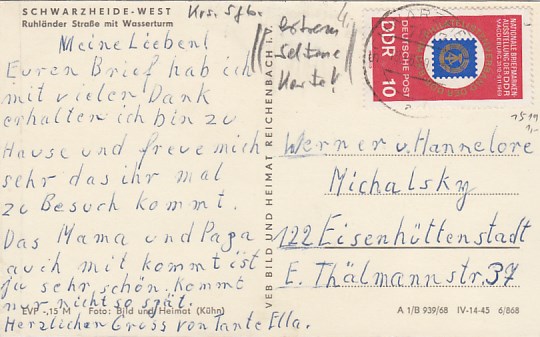 SCHWARZHEIDE-WEST
Ruhländer Straße mit Wasserturm
Meine Lieben!
Euren Brief hab ich
mit vielen Dank
erhalten ich bin zu
Hause und freue mich
sehr das ihr mal
zu Besuch kommt.
Das Mama und Papa
auch mit kommt ist
ja sehr schön. Kommt
nur nicht so spät.
EVP -,15 M Foto: Bild und Heimat (Kühn)
Herzlichen Gruss von Tante Ella.
Krs. Sfbg.
extrem
seltene
Karte!
VEB BILD UND HEIMAT REICHENBACH i. V.
DDR
DEUTSCHE POST
10
NATIONALE BRIEFMARKEN
AUSSTELLUNG DER DDR
MAGDEBURG
1519
1,-
Werner u. Hannelore
Michalsky
122 Eisenhüttenstadt
E. Thälmannstr. 37
A 1/B 939/68 IV-14-45 6/868